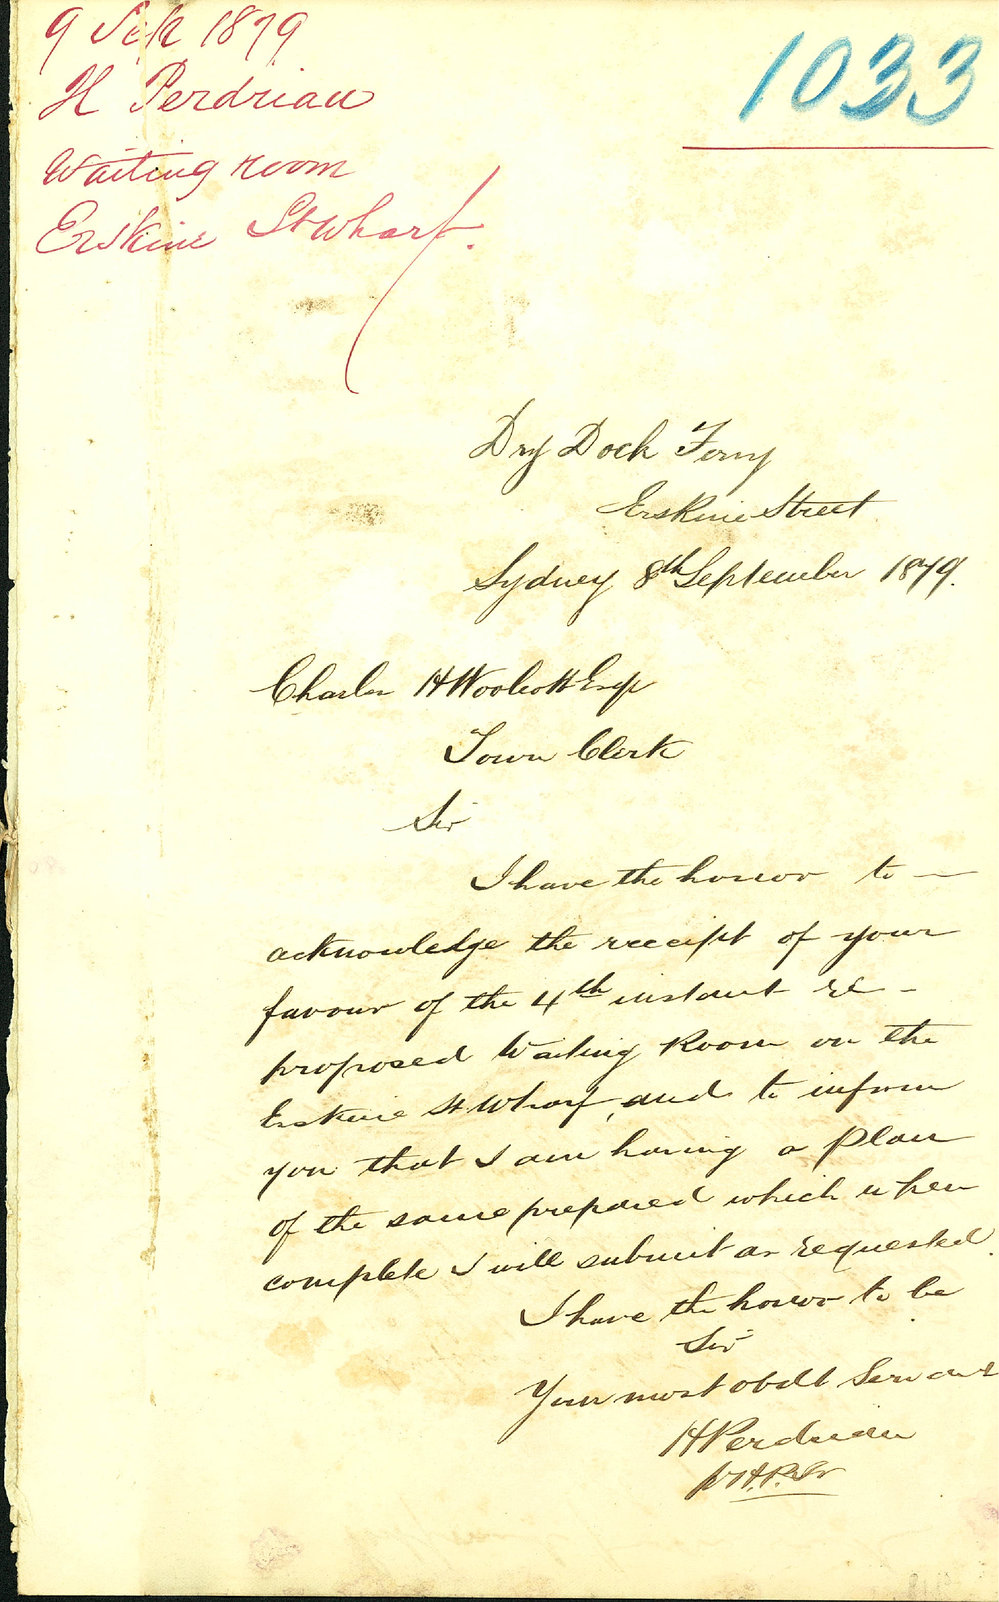 9 Sep 1879
H Perdriau
Waiting room
Erskine St Wharf.
1033
Dry Dock Ferry
Erskine Street
Sydney 8th September 1879.
Charles H Woolcott Esqr
Town Clerk
Sir
I have the honor to —
acknowledge the receipt of your
favour of the 4th instant re -
proposed Waiting Room on the
Erskine St Wharf, and to inform
you that I am having a plan
of the same prepared which when
complete I will submit as requested.
I have the honor to be
Sir
Your most obdt Servant
H Perdriau